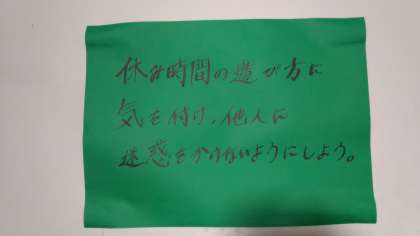 休み時間の遊び方に
気を付け、他人に
迷惑をかけないようにしよう。